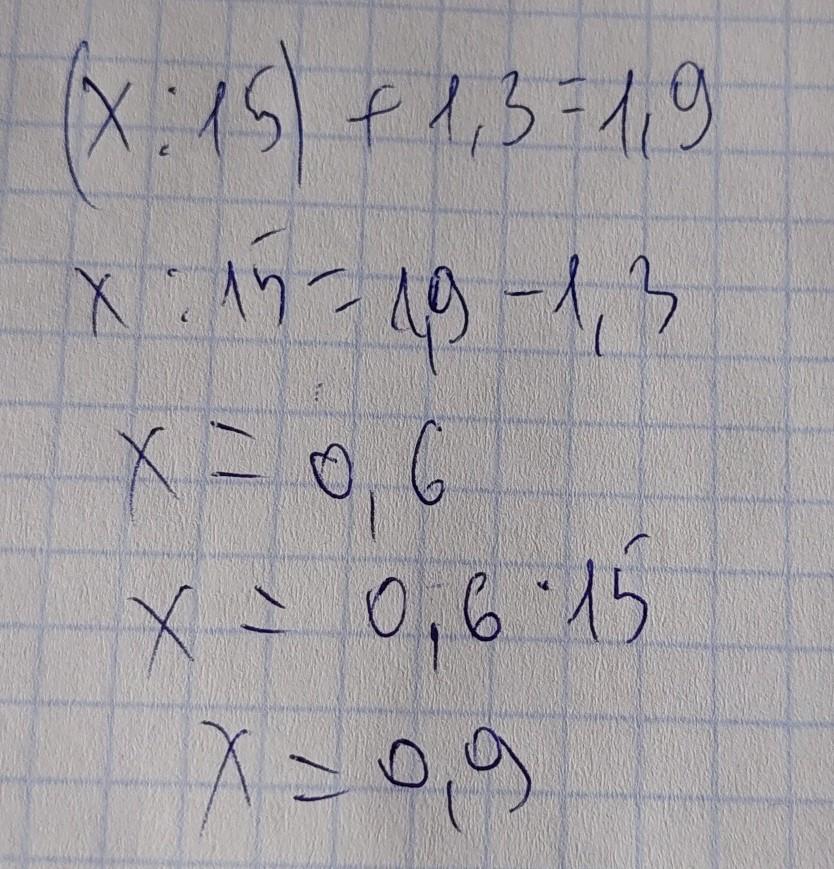 (x : 15) + 1,3 = 1,9
x : 15 = 1,9 - 1,3
x = 0,6
x = 0,6 · 15
x = 0,9